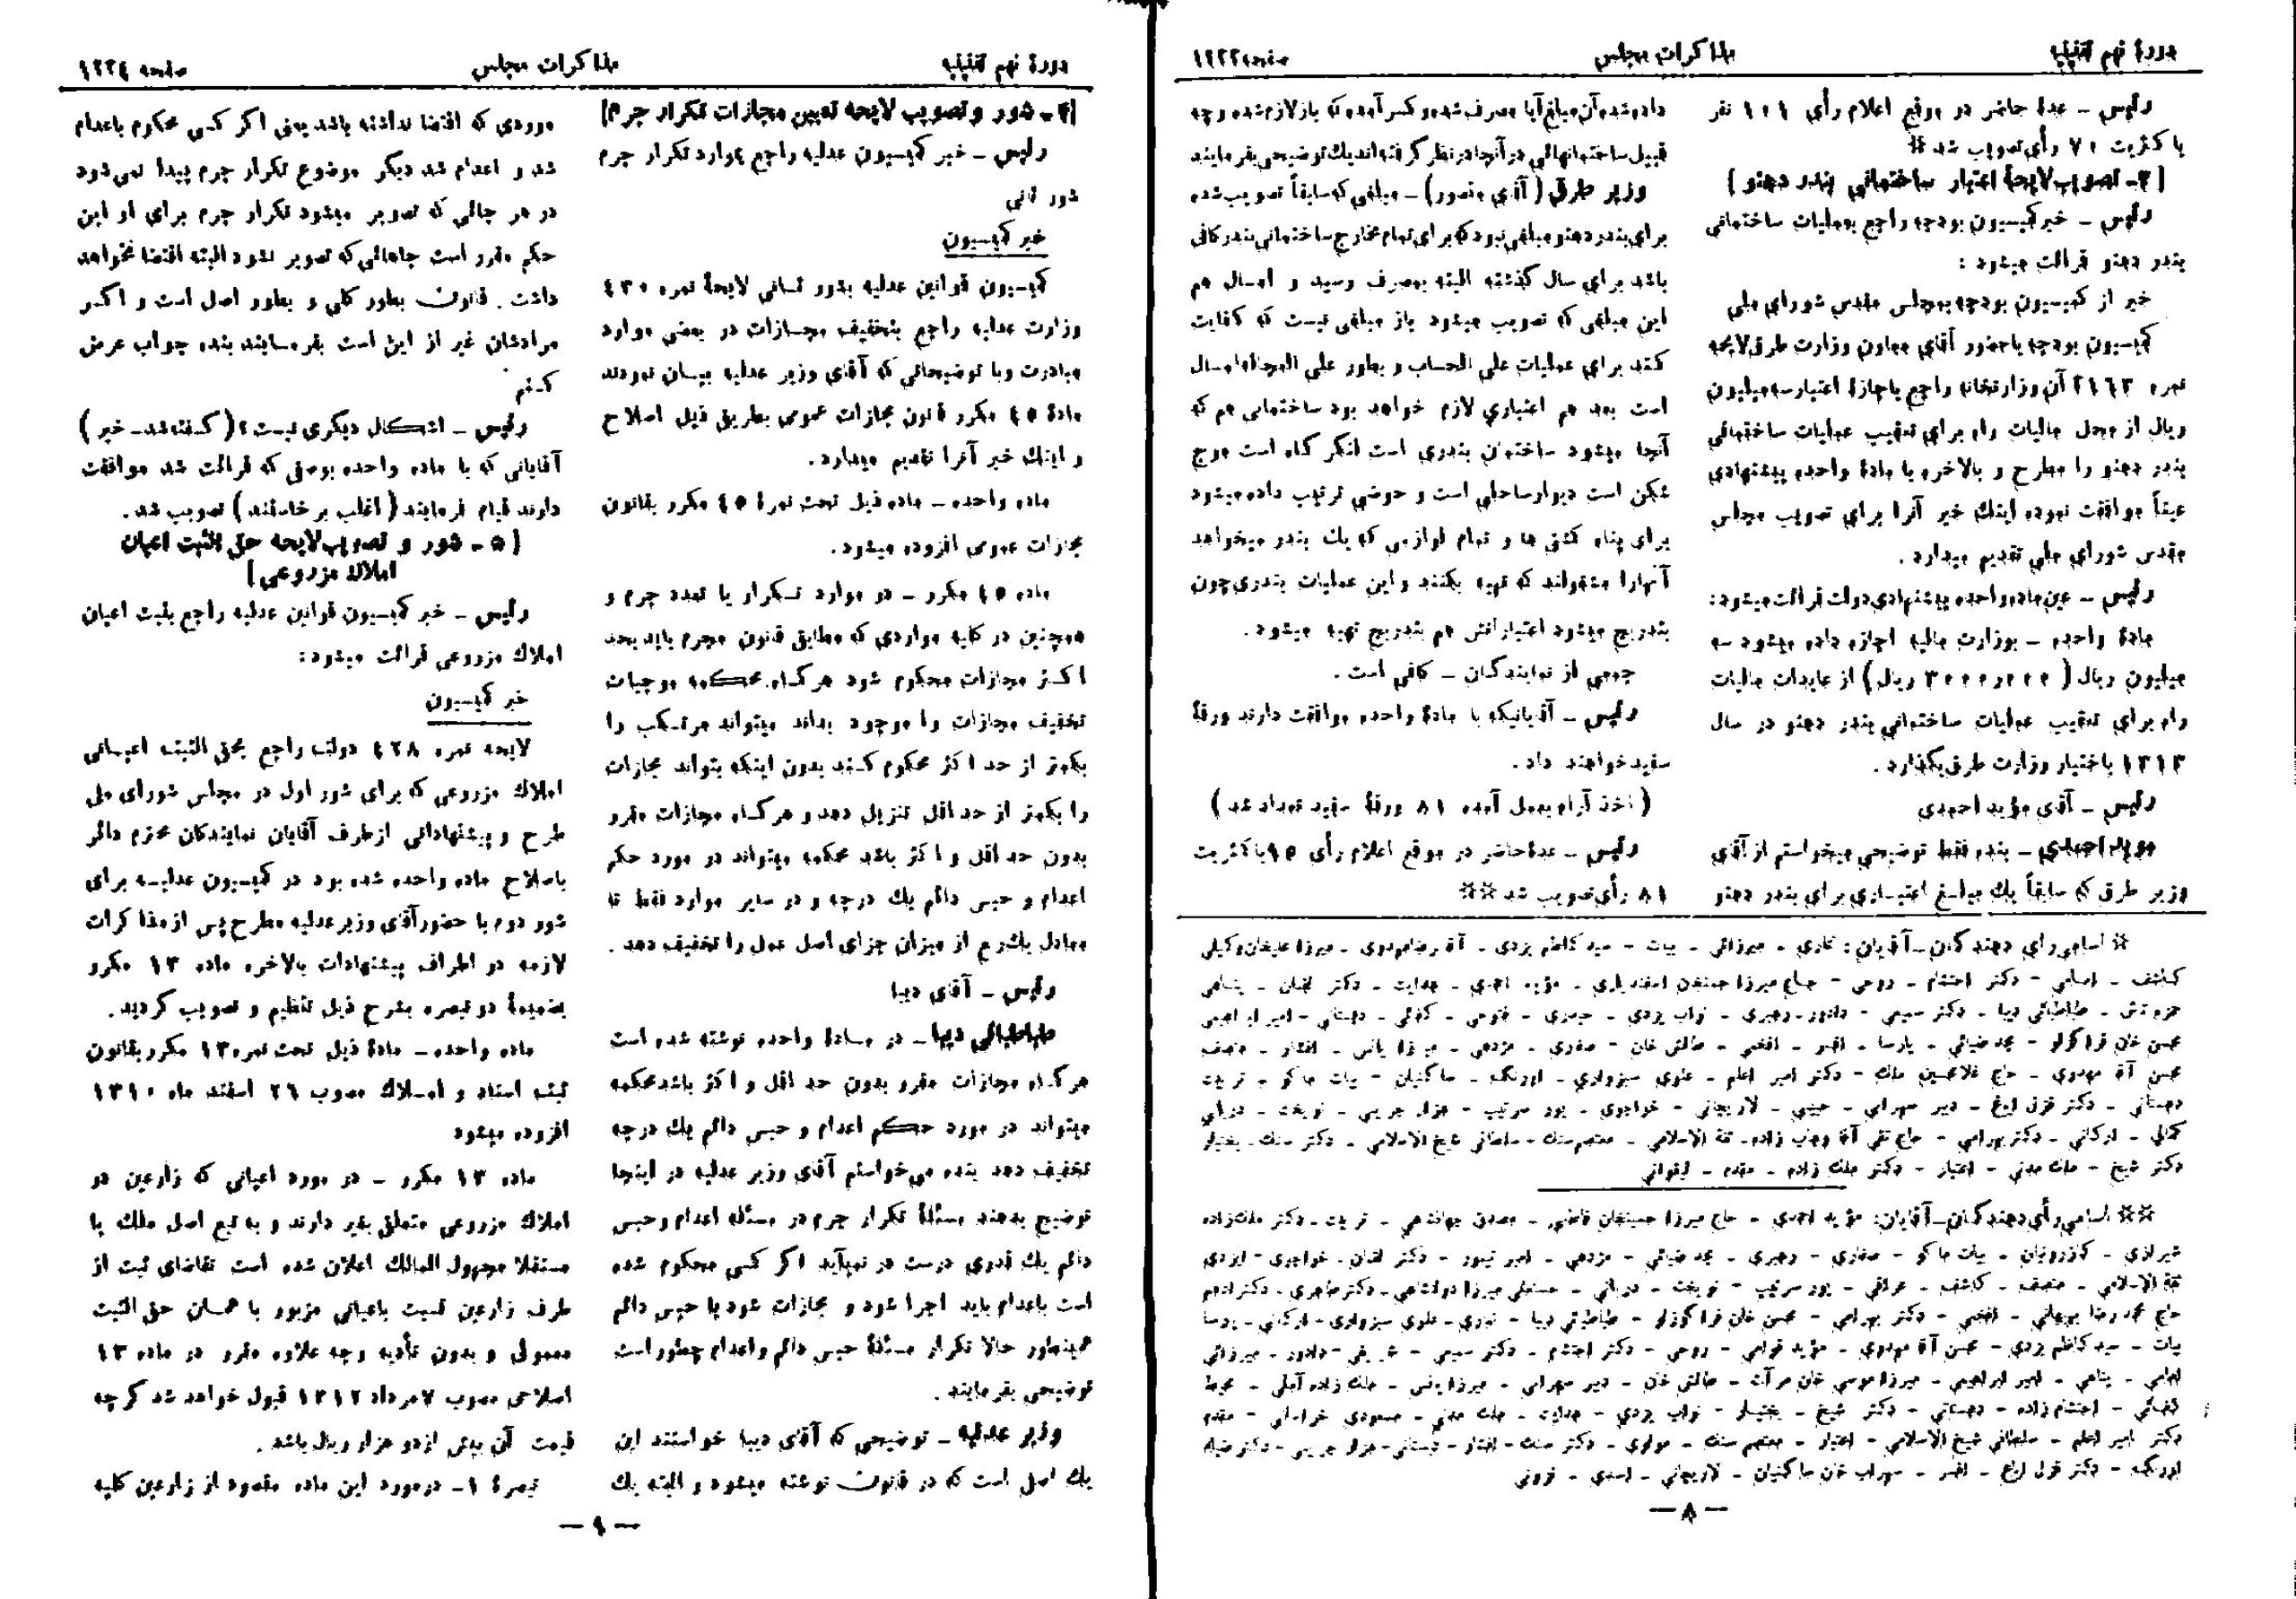 دورهٔ نهم تقنینیه
مذاکرات مجلس
صفحه ۱۲۲۳
رئیس ـ عدهٔ حاضر در موقع اعلام رأی ۱۰۱ نفر
با کثریت ۷۰ رأی تصویب شد *
[ ۳ـ تصویب لایحهٔ اعتبار ساختمانی بندر دهنو ]
رئیس ـ خبر کمیسیون بودجه راجع بعملیات ساختمانی
بندر دهنو قرائت میشود :
خبر از کمیسیون بودجه بمجلس مقدس شورای ملی
کمیسیون بودجه باحضور آقای معاون وزارت طرق لایحه
نمره ۲۱۶۳ آن وزارتخانه راجع باجازهٔ اعتبار سه میلیون
ریال از محل مالیات راه برای تعقیب عملیات ساختمانی
بندر دهنو را مطرح و بالاخره با مادهٔ واحده پیشنهادی
عیناً موافقت نموده اینك خبر آنرا برای تصویب مجلس
مقدس شورای ملی تقدیم میدارد .
رئیس ـ عین ماده واحده پیشنهادی دولت قرائت میشود:
مادهٔ واحده ـ بوزارت مالیه اجازه داده میشود سه
میلیون ریال ( ۳۰۰۰ر۰۰۰ ریال ) از عایدات مالیات
راه برای تعقیب عملیات ساختمانی بندر دهنو در سال
۱۳۱۳ باختیار وزارت طرق بگذارد .
رئیس ـ آقای مؤید احمدی
مؤید احمدی ـ بنده فقط توضیحی میخواستم از آقای
وزیر طرق که سابقاً یك مبلغ اعتباری برای بندر دهنو
داده شده آن مبلغ آیا مصرف شده و کسر آمده که باز لازم شده و چه
قبیل ساختمانهائی در آنجا در نظر گرفته اند یك توضیحی بفرمایند
وزیر طرق ( آقای منصور ) ـ مبلغی که سابقاً تصویب شده
برای بندر دهنو مبلغی نبود که برای تمام مخارج ساختمانی بندر کافی
باشد برای سال گذشته البته بمصرف رسید و امسال هم
این مبلغی که تصویب میشود باز مبلغی نیست که کفایت
کند برای عملیات علی الحساب و بطور علی العجاله امسال
است بعد هم اعتباری لازم خواهد بود ساختمانی هم که
آنجا میشود ساختمان بندری است لنگر گاه است موج
شکن است دیوار ساحلی است و حوضی ترتیب داده میشود
برای پناه کشتی ها و تمام لوازمی که یك بندر میخواهد
آنهارا میتواند که تهیه بکنند و این عملیات بندری چون
بتدریج میشود اعتباراتش هم بتدریج تهیه میشود .
جمعی از نمایندگان ـ کافی است .
رئیس ـ آقایانیکه با مادهٔ واحده موافقت دارند ورقهٔ
سفید خواهند داد .
( اخذ آراء بعمل آمده ۸۱ ورقهٔ سفید تعداد شد )
رئیس ـ عدهٔ حاضر در موقع اعلام رأی ۹۵ با کثریت
۸۱ رأی تصویب شد **
* اسامی رأی دهندگان ـ آقایان : میرزائی ـ بیات ـ سید کاظم یزدی ـ آقا رضا مهدوی ـ میرزا علیخان وکیلی
کاشف ـ امامی ـ دکتر احتشام ـ روحی ـ حاج میرزا حسنخان اسفندیاری ـ مؤید احمدی ـ هدایت ـ دکتر لقمان ـ پناهی
طباطبائی دیبا ـ دکتر سمیعی ـ دادور ـ رهبری ـ نواب یزدی ـ حیدری ـ فتوحی ـ کفائی ـ دهستانی ـ امیر ابراهیمی
محسن خان قراگزلو ـ محمد ضیائی ـ پارسا ـ افسر ـ افخمی ـ طالش خان ـ صفاری ـ مژدهی ـ میرزا یانس ـ افشار ـ منصف
محسن آقا مهدوی ـ حاج غلامحسین ملك ـ دکتر امیر اعلم ـ علوی سبزواری ـ اورنگ ـ ساکینیان ـ بیات ماکو ـ تربیت
دبستانی ـ دکتر قزل ایاغ ـ دبیر سهرابی ـ حبیبی ـ لاریجانی ـ خواجوی ـ پور سرتیپ ـ هزار جریبی ـ نوبخت ـ دربانی
کمالی ـ ارکانی ـ دکتر بهرامی ـ حاج تقی آقا وهاب زاده ـ ثقة الاسلامی ـ معتصم سنك ـ سلطانی شیخ الاسلامی ـ دکتر سنك ـ بختیار
دکتر شیخ ـ ملك مدنی ـ اعتبار ـ دکتر ملك زاده ـ مقدم ـ لیقوانی
** اسامی رأی دهندگان ـ آقایان: مؤید احمدی ـ حاج میرزا حسینخان فاطمی ـ مصدق جهانشاهی ـ تربیت ـ دکتر ملك زاده
شیرازی ـ کازرونیان ـ بیات ماکو ـ صفاری ـ رهبری ـ محمد ضیائی ـ مژدهی ـ امیر تیمور ـ دکتر لقمان ـ خواجوی ـ ایزدی
ثقة الاسلامی ـ منصف ـ کاشف ـ عراقی ـ پور سرتیپ ـ نوبخت ـ دربانی ـ حسنعلی میرزا دولتشاهی ـ دکتر طاهری ـ دکتر ادهم
حاج محمد رضا بهبهانی ـ افخمی ـ دکتر بهرامی ـ محسن خان قراگوزلو ـ طباطبائی دیبا ـ علوی سبزواری ـ ارکانی ـ پارسا
بیات ـ سید کاظم یزدی ـ محسن آقا مهدوی ـ مؤید قوامی ـ روحی ـ دکتر احتشام ـ دکتر سمیعی ـ شریفی ـ دادور ـ میرزائی
امامی ـ پناهی ـ امیر ابراهیمی ـ میرزا موسی خان مرآت ـ طالش خان ـ دبیر سهرابی ـ میرزا یانس ـ ملك زاده آملی ـ محیط
کفائی ـ احتشام زاده ـ دهستانی ـ دکتر شیخ ـ بختیار ـ نواب یزدی ـ هدایت ـ ملك مدنی ـ مسعودی خراسانی ـ مقدم
دکتر امیر اعلم ـ سلطانی شیخ الاسلامی ـ اعتبار ـ معتصم سنك ـ مولوی ـ دکتر سنك ـ افشار ـ دبستانی ـ هزار جریبی ـ دکتر ضیاء
اورنگ ـ دکتر قزل ایاغ ـ افسر ـ سهراب خان ساکینیان ـ لاریجانی ـ اسدی ـ قزونی
ـ ۸ ـ
دورهٔ نهم تقنینیه
مذاکرات مجلس
صفحه ۱۲۲۴
[۴ـ شور و تصویب لایحه تعیین مجازات تکرار جرم]
رئیس ـ خبر کمیسیون عدلیه راجع بموارد تکرار جرم
شور ثانی
خبر کمیسیون
کمیسیون قوانین عدلیه بشور ثانی لایحهٔ نمره ۴۳۰
وزارت عدلیه راجع بتخفیف مجازات در بعضی موارد
مبادرت و با توضیحاتی که آقای وزیر عدلیه بیان نمودند
مادهٔ ۴۵ مکرر قانون مجازات عمومی بطریق ذیل اصلاح
و اینك خبر آنرا تقدیم میدارد.
ماده واحده ـ ماده ذیل تحت نمرهٔ ۴۵ مکرر بقانون
مجازات عمومی افزوده میشود.
ماده ۴۵ مکرر ـ در موارد تکرار یا تعدد جرم و
همچنین در کلیه مواردی که مطابق قانون مجرم باید بحد
اکثر مجازات محکوم شود هرگاه محکمه موجبات
تخفیف مجازات را موجود بداند میتواند مرتکب را
بکمتر از حد اکثر محکوم کند بدون اینکه بتواند مجازات
را بکمتر از حد اقل تنزیل دهد و هرگاه مجازات مقرر
بدون حد اقل و اکثر باشد محکمه میتواند در مورد حکم
اعدام و حبس دائم یك درجه و در سایر موارد فقط تا
معادل یك ربع از میزان جزای اصل عمل را تخفیف دهد .
رئیس ـ آقای دیبا
طباطبائی دیبا ـ در مادهٔ واحده نوشته شده است
هرگاه مجازات مقرر بدون حد اقل و اکثر باشد محکمه
میتواند در مورد حکم اعدام و حبس دائم یك درجه
تخفیف دهد بنده می‌خواستم آقای وزیر عدلیه در اینجا
توضیح بدهند مسئلهٔ تکرار جرم در مسئله اعدام و حبس
دائم یك قدری درست در نمیآید اگر کسی محکوم شده
است باعدام باید اجرا شود و مجازات شود یا حبس دائم
همینطور حالا تکرار مسئلهٔ حبس دائم و اعدام چطور است
توضیحی بفرمایند .
وزیر عدلیه ـ توضیحی که آقای دیبا خواستند این
یك اصل است که در قانون نوشته میشود و البته یك
موردی که اقتضا نداشته باشد یعنی اگر کسی محکوم باعدام
شد و اعدام شد دیگر موضوع تکرار جرم پیدا نمی‌شود
در هر جائی که تصویر میشود تکرار جرم برای او این
حکم مقرر است جاهائی که تصویر نشود البته اقتضا نخواهد
داشت . قانون بطور کلی و بطور اصل است و اگر
مرادشان غیر از این است بفرمایند بنده جواب عرض
کنم
رئیس ـ اشکال دیگری نیست ؟ ( گفته شد ـ خیر )
آقایانی که با ماده واحده بوصفی که قرائت شد موافقت
دارند قیام فرمایند ( اغلب برخاستند ) تصویب شد .
[ ۵ ـ شور و تصویب لایحه حق الثبت اعیان
املاك مزروعی ]
رئیس ـ خبر کمیسیون قوانین عدلیه راجع بثبت اعیان
املاك مزروعی قرائت میشود:
خبر کمیسیون
لایحه نمره ۴۲۸ دولت راجع بحق الثبت اعیانی
املاك مزروعی که برای شور اول در مجلس شورای ملی
طرح و پیشنهاداتی از طرف آقایان نمایندگان محترم دائر
باصلاح ماده واحده شده بود در کمیسیون عدلیه برای
شور دوم با حضور آقای وزیر عدلیه مطرح پس از مذاکرات
لازمه در اطراف پیشنهادات بالاخره ماده ۱۳ مکرر
بضمیمهٔ دو تبصره بشرح ذیل تنظیم و تصویب گردید.
ماده واحده ـ مادهٔ ذیل تحت نمره ۱۳ مکرر بقانون
ثبت اسناد و املاك مصوب ۲۶ اسفند ماه ۱۳۱۰
افزوده میشود
ماده ۱۳ مکرر ـ در مورد اعیانی که زارعین در
املاك مزروعی متعلق بغیر دارند و به تبع اصل ملك یا
مستقلا مجهول المالك اعلان شده است تقاضای ثبت از
طرف زارعین نسبت باعیانی مزبور با همان حق الثبت
معمولی و بدون تأدیه وجه علاوه مقرر در ماده ۱۳
اصلاحی مصوب ۷ مرداد ۱۳۱۲ قبول خواهد شد گرچه
قیمت آن بیش از دو هزار ریال باشد .
تبصرهٔ ۱ـ در مورد این ماده مقصود از زارعین کلیه
ـ ۹ ـ